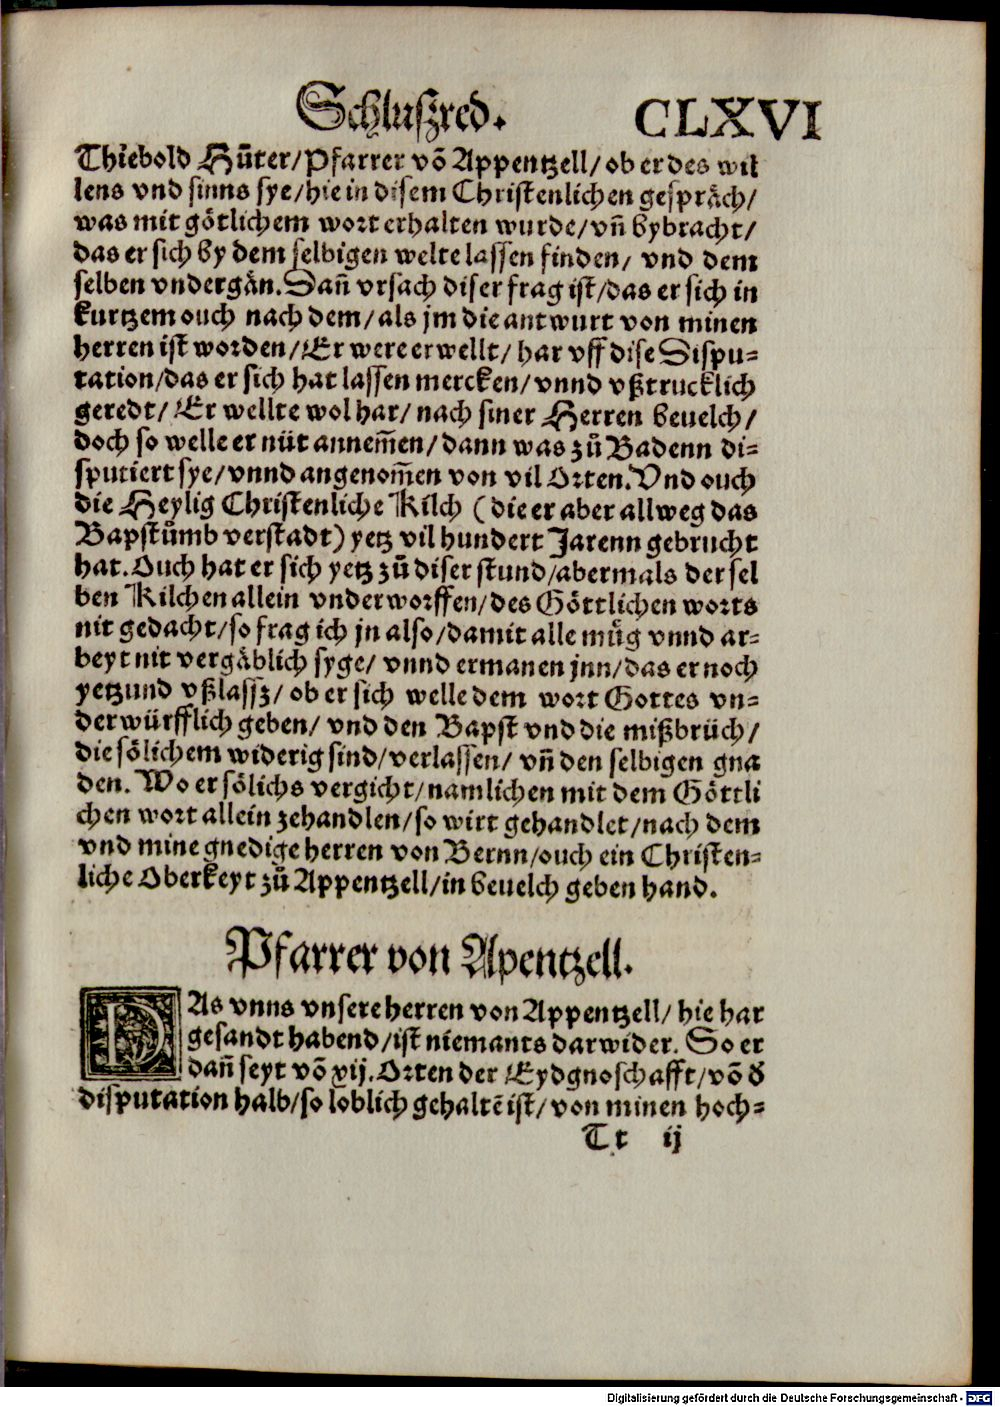 Schluſzred. CLXVI
Thiebold Hůter/Pfarrer võ Appentzell/ ob er des wil
lens vnd sinns sye/hie in disem Christenlichen gespräch/
was mit götlichem wort erhalten wurde/vñ bybracht/
das er sich by dem selbigen welte lassen finden/ vnd dem
selben vndergän. Dañ vrsach diser frag ist/das er sich in
kurtzem ouch nach dem/als jm die antwurt von minen
herren ist worden/Er were erwellt/ har vff dise Dispu-
tation/das er sich hat lassen mercken/vnnd vßtrucklich
geredt/ Er wellte wol har/ nach siner Herren beuelch/
doch so welle er nüt annem̃en/dann was zů Badenn di-
sputiert sye/vnnd angenom̃en von vil Orten. Vnd ouch
die Heylig Christenliche Kilch (die er aber allweg das
Bapstůmb verstadt) yetz vil hundert Jarenn gebrucht
hat. Ouch hat er sich yetz zů diser stund/abermals der sel
ben Kilchen allein vnderworffen/des Göttlichen worts
nit gedacht/so frag ich jn also/damit alle můg vnnd ar-
beyt nit vergäblich syge/ vnnd ermanen jnn/das er noch
yetzund vßlassz/ ob er sich welle dem wort Gottes vn-
derwürfflich geben/ vnd den Bapst vnd die mißbrüch/
die sölichem widerig sind/verlassen/ vñ den selbigen gna
den. Wo er sölichs vergicht/namlichen mit dem Göttli
chen wort allein zehandlen/so wirt gehandlet/nach dem
vnd mine gnedige herren von Bernn/ouch ein Christen-
liche Oberkeyt zů Appentzell/in beuelch geben hand.
Pfarrer von Apentzell.
DAs vnns vnsere herren von Appentzell/ hie har
gesandt habend/ist niemants darwider. So er
dañ seyt võ xij. Orten der Eydgnoschafft/võ d̕
disputation halb/so loblich gehaltẽ ist/ von minen hoch-
Tt ij
Digitalisierung gefördert durch die Deutsche Forschungsgemeinschaft - DFG